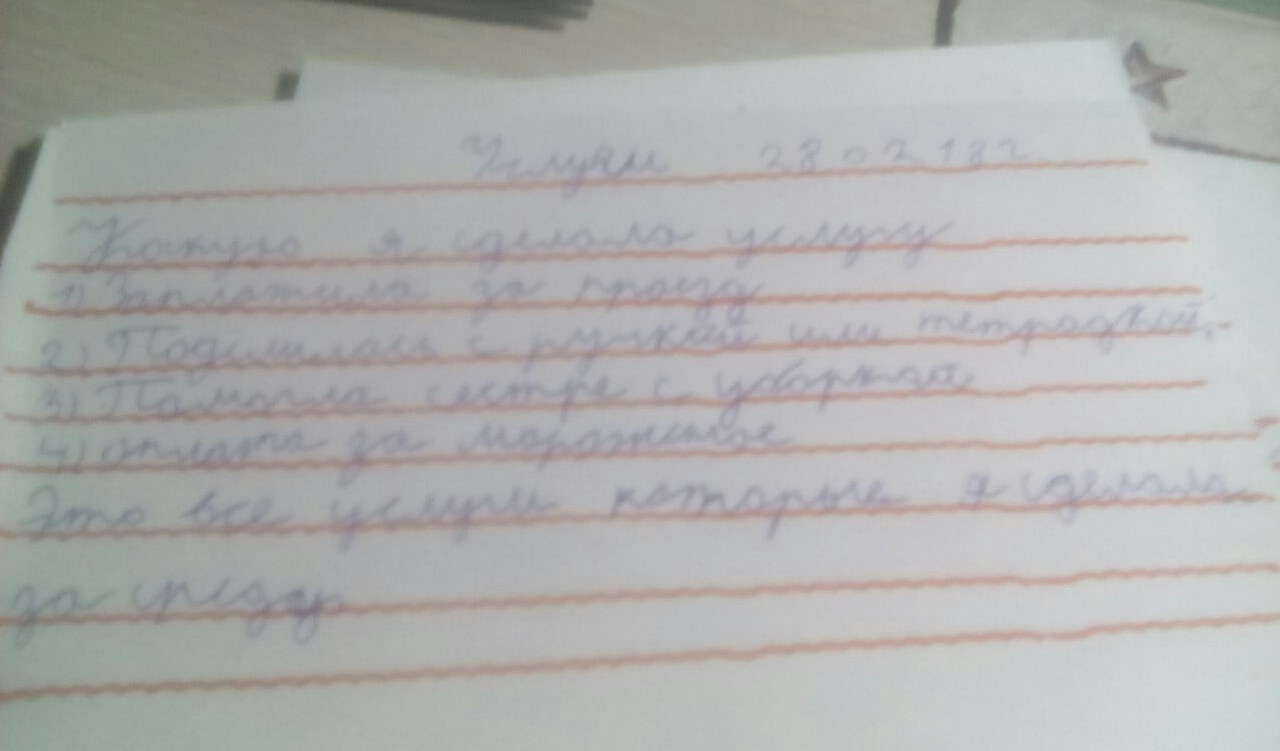 Услуги 28 02 18 г.
Какую я сделала услугу
1) Заплатила за проезд
2) Поделилась с ручкой или тетрадкой.
3) Помогла сестре с уборкой
4) оплата за мороженое
Это все услуги которые я сделала
за среду.